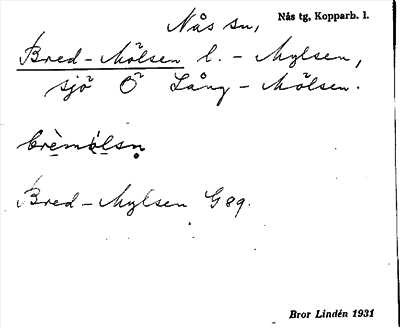 Nås sn, Nås tg, Kopparb. l.
Bred-Mölsen l. - Mylsen,
sjö Ö Lång-Mölsen.
brèmölsn
Bred-Mylsen G 89.
Bror Lindén 1931